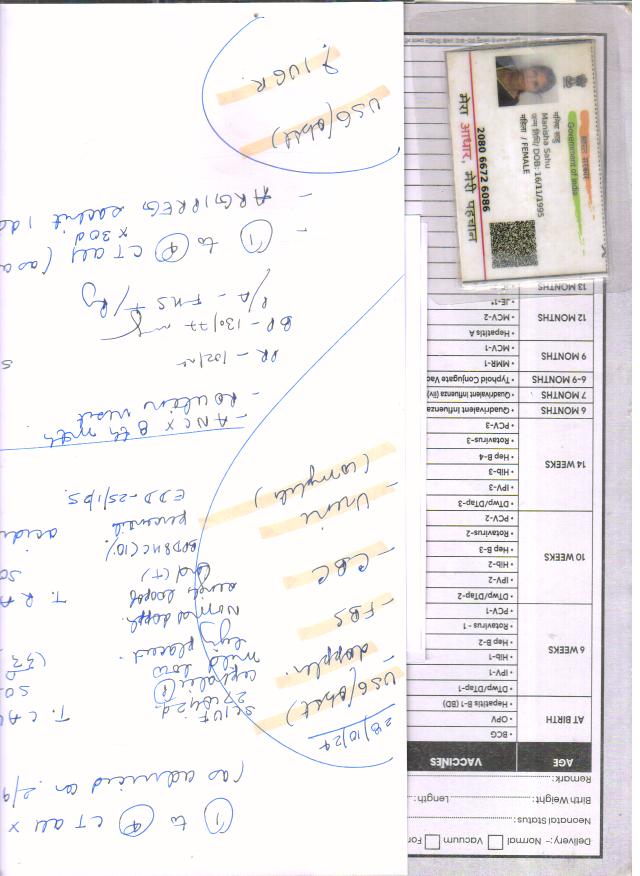 Delivery :- Normal Vacuum For
Neonatal Status:
Birth Weight: Length:
Remark:
AGE VACCINES
AT BIRTH
• BCG
• OPV
• Hepatitis B-1 (BD)
6 WEEKS
• DTwp/DTap-1
• IPV-1
• Hib-1
• Hep B-2
• Rotavirus - 1
• PCV-1
10 WEEKS
• DTwp/DTap-2
• IPV-2
• Hib-2
• Hep B-3
• Rotavirus-2
• PCV-2
14 WEEKS
• DTwp/DTap-3
• IPV-3
• Hib-3
• Hep B-4
• Rotavirus-3
• PCV-3
6 MONTHS • Quadrivalent Influenza
7 MONTHS • Quadrivalent Influenza (IIV)
6-9 MONTHS • Typhoid Conjugate Vac
9 MONTHS
• MMR-1
• MCV-1
12 MONTHS
• Hepatitis A
• MCV-2
• JE-1*
13 MONTHS
भारत सरकार
Government of India
मनिषा साहू
Manisha Sahu
जन्म तिथि/ DOB: 16/11/1995
महिला / FEMALE
2080 6672 6086
मेरा आधार, मेरी पहचान
① to ④ CT all x
(as advised on 2/9
28/10/24
USG (obst)
doppler
- FBS
- CBC
- Urine
(complete)
SLIUF
27 wk 2d
cephalic
mild low
lying placent.
Normal doppl.
BPD & HC (10
percentile
EDD - 25/1/25
- ANC x 8th mth
- Routine visit
PR - 102/m
BP - 130/77
P/A - FHS +/Rg
- ① to ④ CT all (as a
x 30d
- ARGIPREG sachet 1 da
USG (obst)
? IUGR.